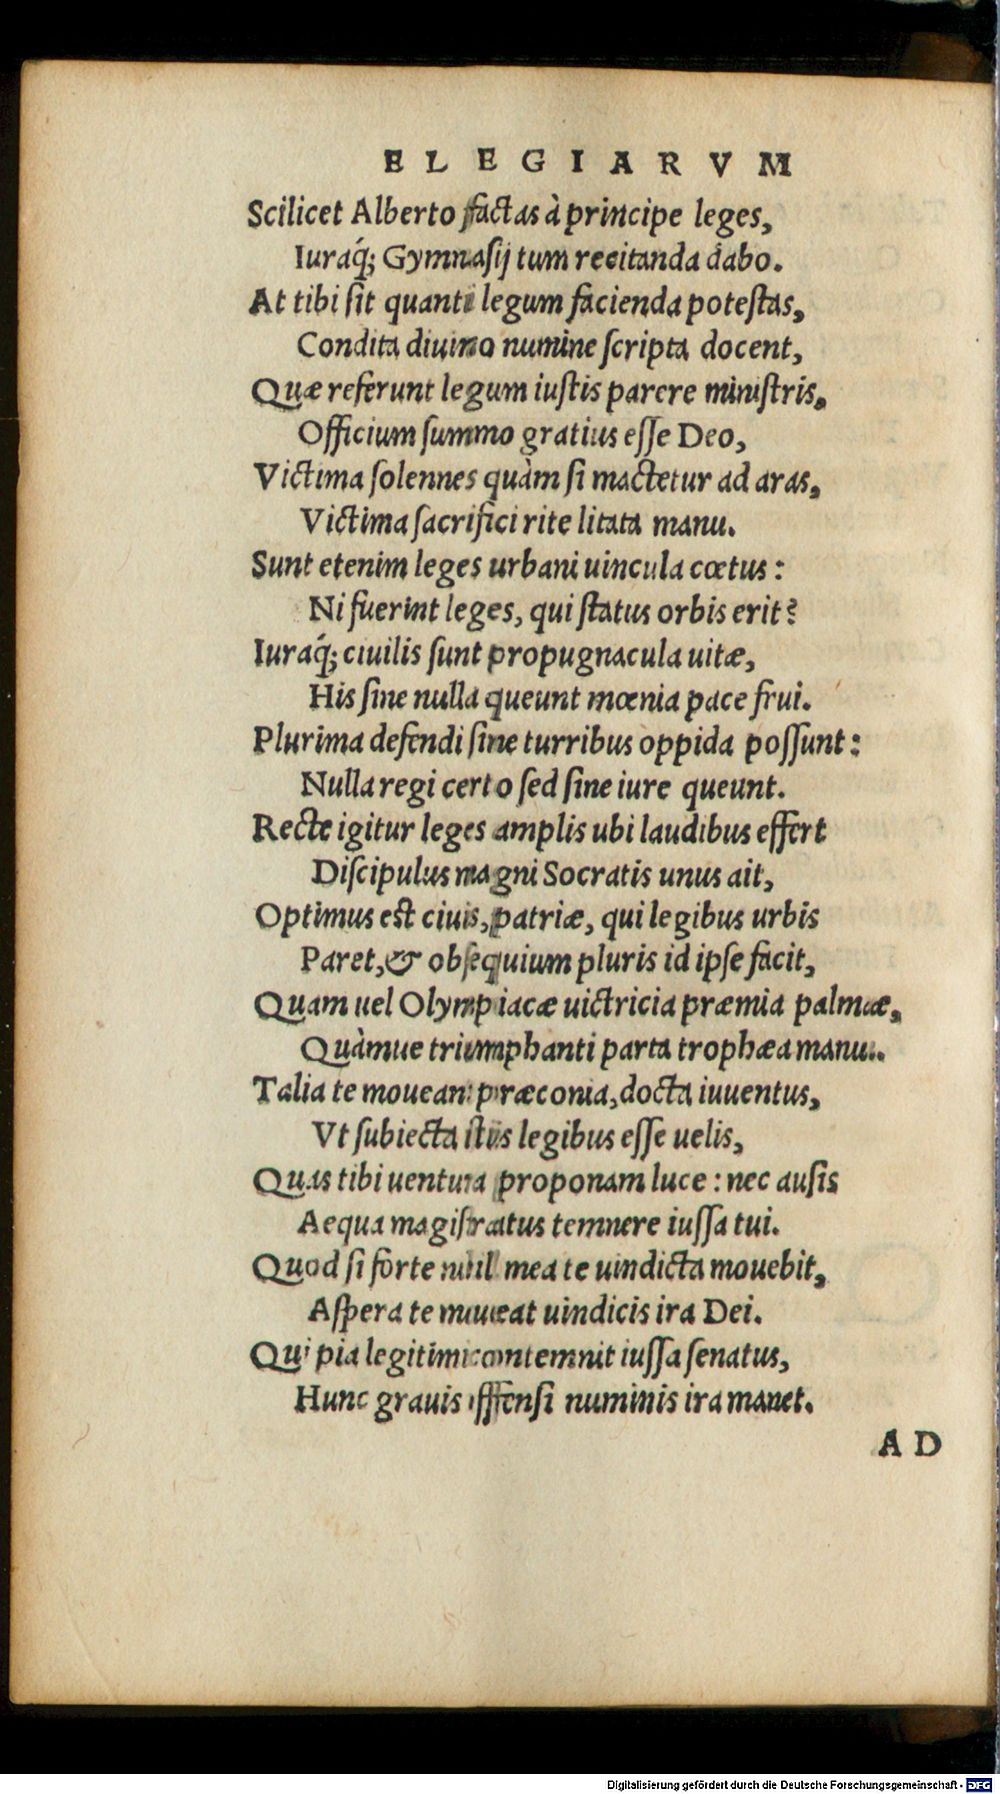 ELEGIARVM
Scilicet Alberto factas à principe leges,
Iuraq́; Gymnaſij tum recitanda dabo.
At tibi ſit quanti legum facienda poteſtas,
Condita diuino numine ſcripta docent,
Quæ referunt legum iuſtis parere miniſtris,
Officium ſummo gratius eſſe Deo,
Victima ſolennes quàm ſi mactetur ad aras,
Victima ſacrifici rite litata manu.
Sunt etenim leges urbani uincula cœtus:
Ni fuerint leges, qui ſtatus orbis erit?
Iuraq́; ciuilis ſunt propugnacula uitæ,
His ſine nulla queunt mœnia pace frui.
Plurima defendi ſine turribus oppida poſſunt:
Nulla regi certo ſed ſine iure queunt.
Recte igitur leges amplis ubi laudibus effert
Diſcipulus magni Socratis unus ait,
Optimus est ciuis, patriæ, qui legibus urbis
Paret, & obſequium pluris id ipſe facit,
Quam uel Olympiacæ uictricia præmia palmæ,
Quàmue triumphanti parta trophæa manu..
Talia te moueant præconia, docta iuuentus,
Vt ſubiecta iſtis legibus eſſe uelis,
Quas tibi uentura proponam luce: nec auſis
Aequa magiſtratus temnere iuſſa tui.
Quod ſi forte nihil mea te uindicta mouebit,
Aſpera te moueat uindicis ira Dei.
Qui pia legitimi contemnit iuſſa ſenatus,
Hunc grauis offenſi numinis ira manet.
AD
Digitalisierung gefördert durch die Deutsche Forschungsgemeinschaft - DFG